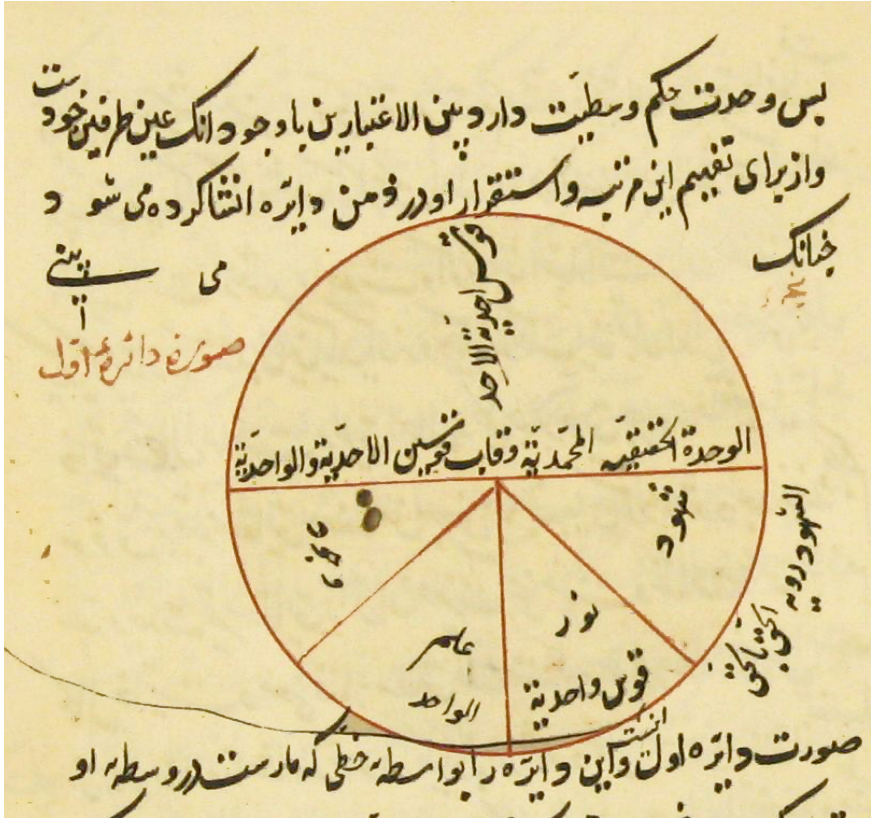 پس وحدت حکم وسطیّت دارد بین الاعتبارین با وجود انک عین طرفین خودست
و از برای تفهیم این مرتبه و استقرار او در ذهن دایره انشا کرده می شود
چنانک
می بینی
صورة دائرهٔ اوّل
قوس احدیّة الاحد
الوحدة الحقیقیّه المحمّدیّة و قاب قوسین الاحدیّة والواحدیّة
شهود
نور
علم
قوس واحدیّة
الواحد
الشهود رویة
الحق بالحق
صورت دایره اول اینست و این دایره را بواسطه خطی که مارست در وسط او